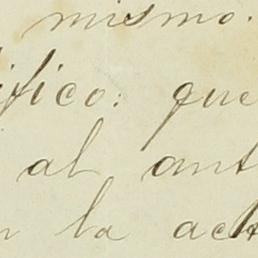 mismo.
ifico: que
al ant
n la act